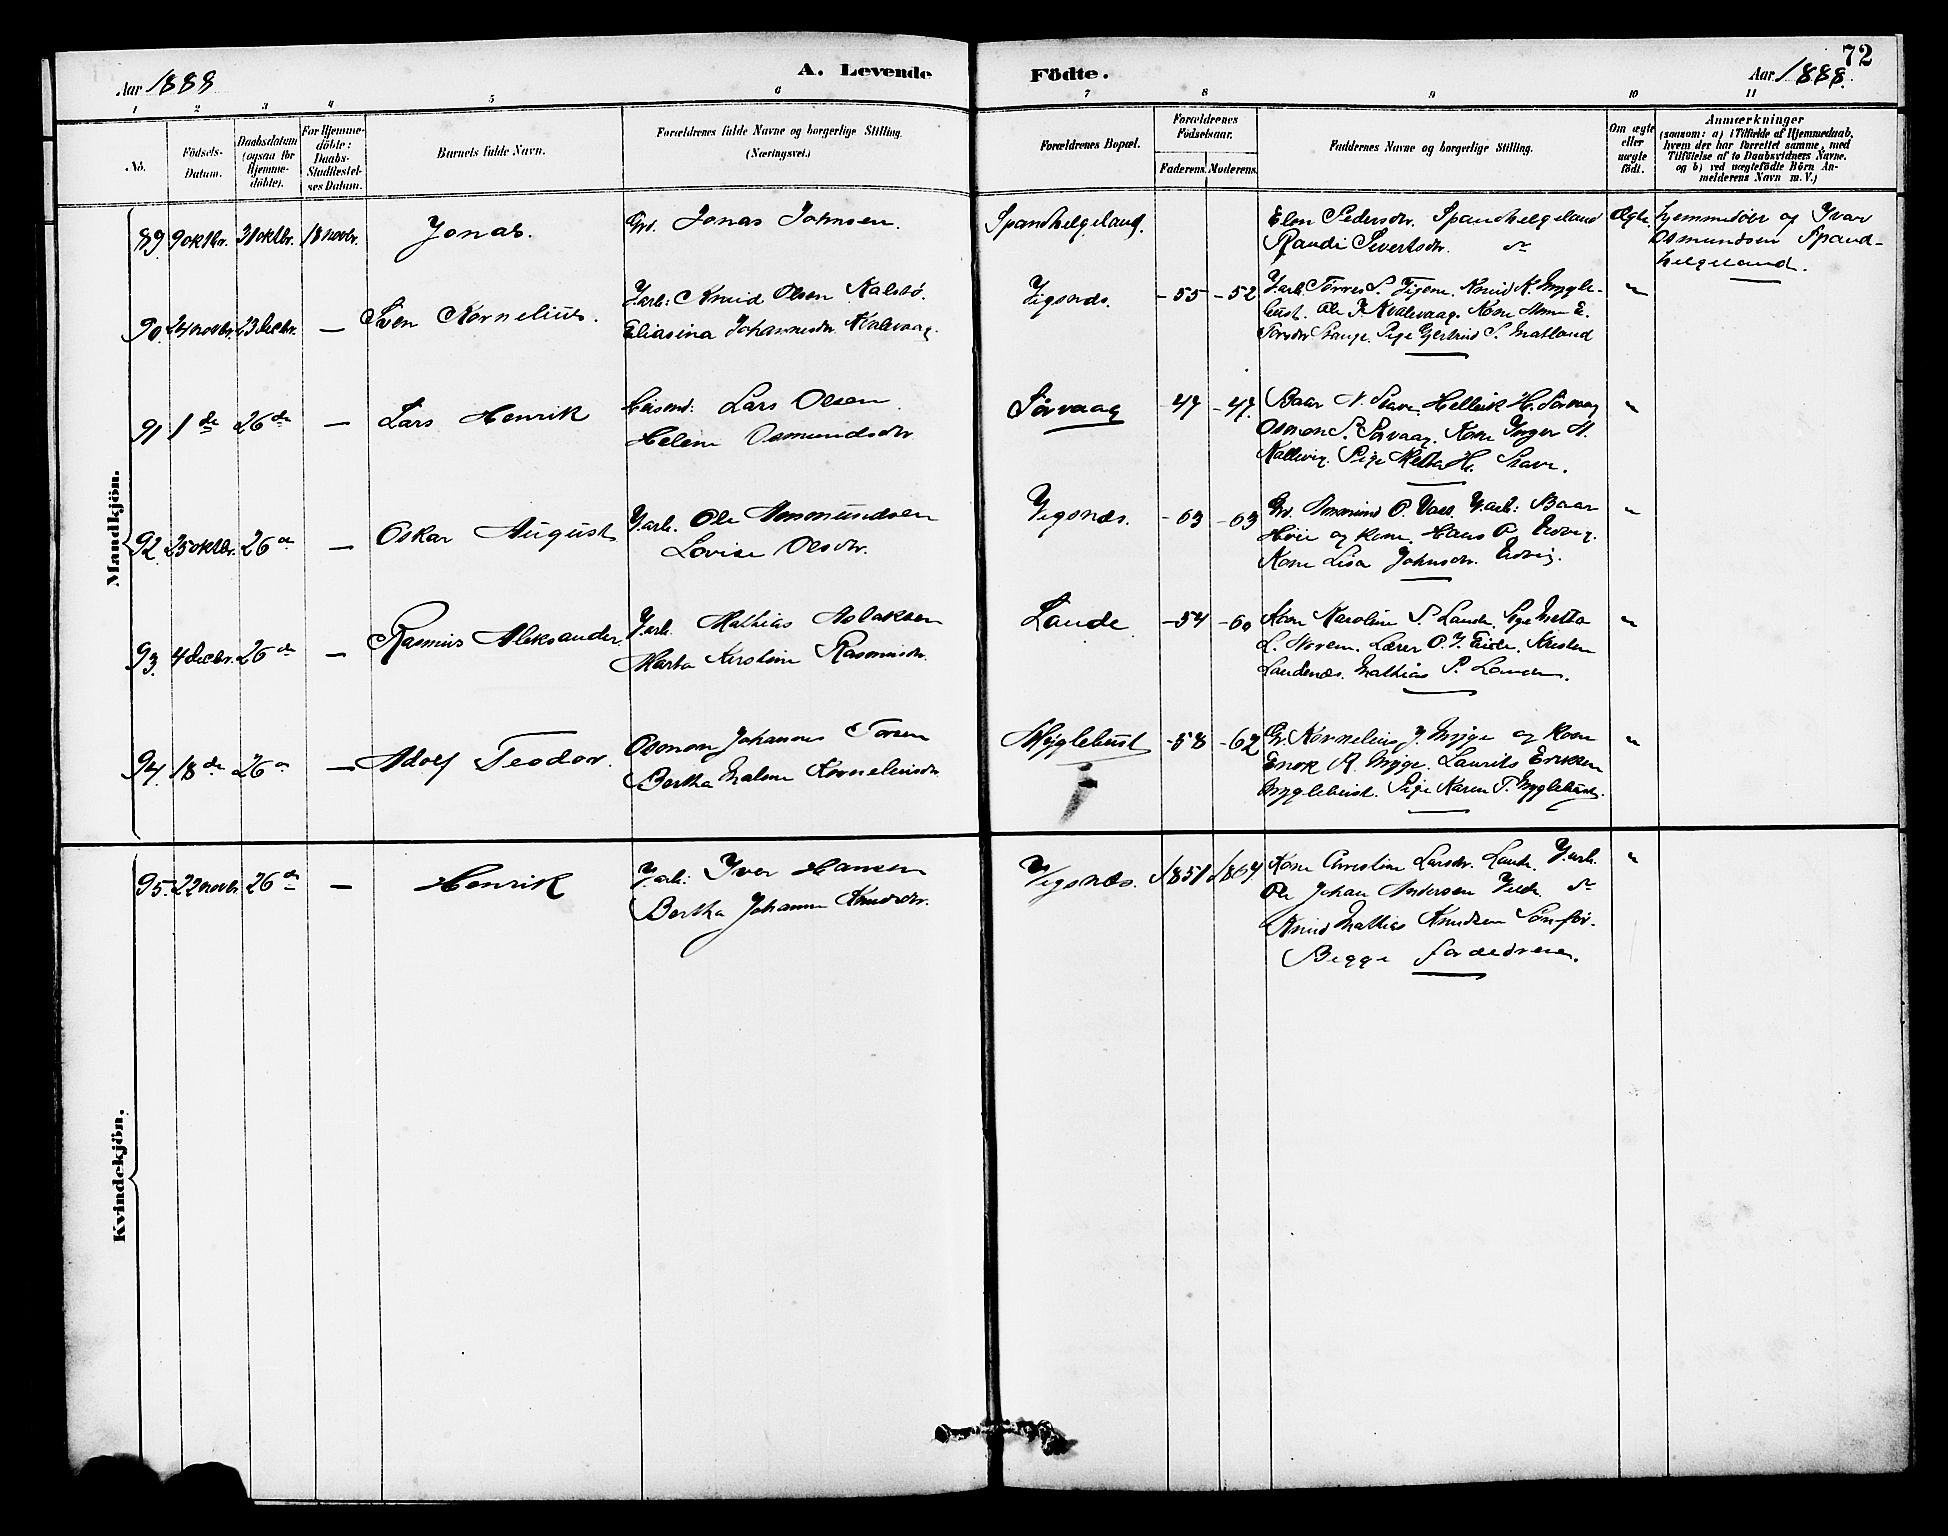 72
Aar 1888
A. Levende
Födte.
Aar 1888.
1 2 3 4 5 6 7 8 9 10 11
No.
Födsels-
Datum.
Daabsdatum
(ogsaa for
Hjemme-
döbte).
For Hjemme-
döbte:
Daabs-
Stadfæstel-
ses Datum.
Barnets fulde Navn.
Forældrenes fulde Navne og borgerlige Stilling.
(Næringsvei.)
Forældrenes Bopæl.
Forældrenes
Födselsaar.
Faderens. Moderens.
Faddernes Navne og borgerlige Stilling.
Om ægte
eller
uægte
födt.
Anmærkninger
(saasom: a) i Tilfælde af Hjemmedaab,
hvem der har forrettet samme, med
Tilföielse af to Daabsvidners Navne.
og b) ved uægtefödte Börn An-
melderens Navn m. V.)
Mandkjön.
89. 9 oktbr. 31 oktbr. 18 novbr. Jonas.
Gr. Jonas Johnsen
Spandhelgeland.
Elen Pedersdr. Spandhelgeland
Randi Sivertsdr. do
Ægte.
hjemmedöbt og Ivar
Osmundsen Spand-
helgeland.
90. 24 novbr. 23 decbr. — Sven Kornelius.
Y.arb: Knud Olsen Kalstö.
Eliasina Johannesdr. Kvalevaag
Vigsnæs. -55 -52
Y.arb. Torres S. Kone Knud K. Mygle-
bust. Ole J. Kvalevaag. Kone
Stange. Pige Gjertrud S. Matland
"
91 1 de 26 de — Lars Henrik
Huusmd: Lars Olsen
Helene Osmundsdr
Sörvaag -47 -47.
Baar N. Stave. Hellik H. Sörvaag
Osmon S. Sörvaag. Kone Inger M.
Kallevig. Pige Metta H. Stave.
"
92. 25 oktbr. 26 de — Oskar August
Y.arb. Ole Ammundsen
Lovise Olsdr.
Vigsnæs. -63 -63
Gr. Ammund O. Y.arb: Baar
Höie og kone. Hans O. Eidvig.
Kone Lisa Johnsdr. Eidvig.
"
93. 4 decbr. 26 de — Rasmus Aleksander
Y.arb. Mathias Aslaksen
Marta Kirstine Rasmusdr.
Lande -54 -60
Kone Karoline S. Lande. Pige Metta
L. Lærer O. J. Eide. Kristen
Landenæs. Mathias P. Lande.
"
94. 18 de 26 de — Adolf Teodor.
Osmon Johannes Torsen
Bertha Malene Korneliusdr
Myglebust -58 -62
Gr. Kornelius J. Myge og Kone
Enok R. Myge. Laurits Eriksen
Myglebust. Pige Karen T. Myglebust.
"
Kvindekjön.
95. 22 novbr 26 de — Henrik
Y.arb: Iver Hansen
Bertha Johanne Knudsdr.
Vigsnæs. 1851 1864
Kone Christine Larsdr. Lande. Y.arb.
Ole Johan Andersen Vede do
Knud Mathias Knudsen Sönför.
Begge forældrene.
"